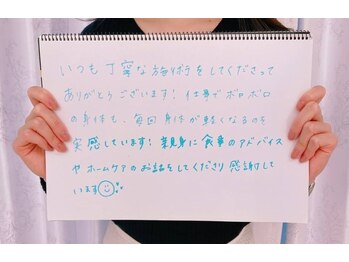 いつも丁寧な施術をしてくださって
ありがとうございます！仕事でボロボロ
の身体も、毎回身体が軽くなるのを
実感しています！親身に食事のアドバイス
やホームケアのお話をしてくださり感謝して
います